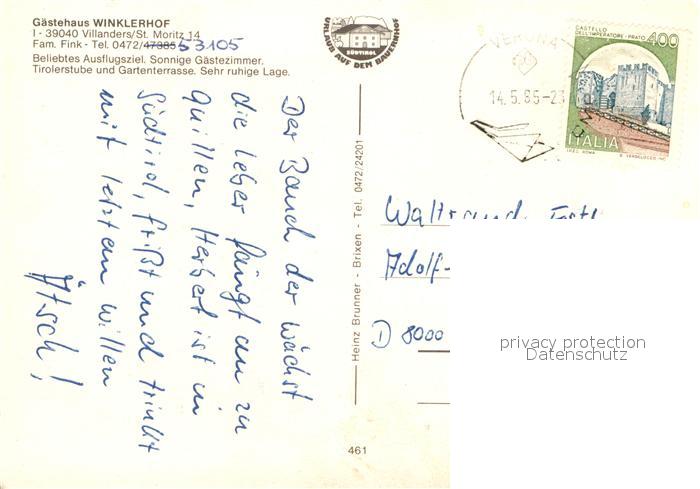 Gästehaus WINKLERHOF
I - 39040 Villanders/St. Moritz 14
Fam. Fink - Tel. 0472/47385 53105
Beliebtes Ausflugsziel. Sonnige Gästezimmer.
Tirolerstube und Gartenterrasse. Sehr ruhige Lage.
URLAUB AUF DEM BAUERNHOF
SÜDTIROL
VERONA
14.5.85-23
CASTELLO
DELL'IMPERATORE - PRATO
400
ITALIA
I.P.Z.S. ROMA
Der Bauch der wächst
die Leber fängt an zu
Quillen, Herbert ist in
Südtirol, frißt und trinkt
mit letztem willen
Ätsch!
Heinz Brunner - Brixen - Tel. 0472/24201
Waltraud
Adolf-
D 8000
privacy protection
Datenschutz
461